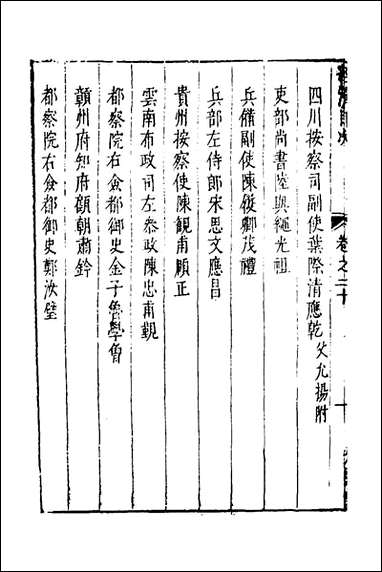 卷之二十
四川按察司副使葉際清應乾父允揚附
吏部尚書陸與繩光祖
兵備副使陳後卿茂禮
兵部左侍郎宋思文應昌
貴州按察使陳觀甫順正
雲南布政司左叅政陳忠甫觀
都察院右僉都御史金子魯學曾
贛州府知府顧朝肅鈐
都察院右僉都御史鄭汝璧